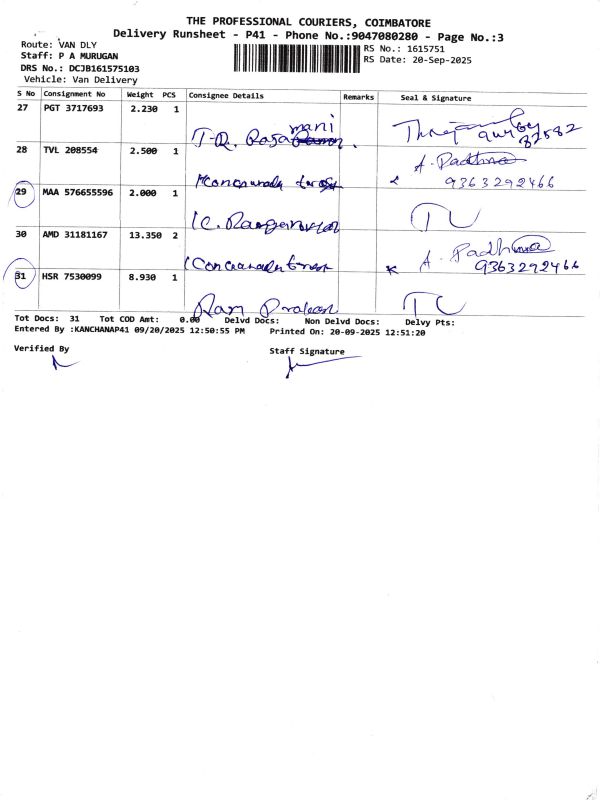 THE PROFESSIONAL COURIERS, COIMBATORE
Delivery Runsheet - P41 - Phone No.:9047080280 - Page No.:3
Route: VAN DLY
RS No.: 1615751
Staff: P A MURUGAN
RS Date: 20-Sep-2025
DRS No.: DCJB161575103
Vehicle: Van Delivery
S No Consignment No Weight PCS Consignee Details Remarks Seal & Signature
27 PGT 3717693 2.230 1
mani
28 TVL 208554 2.500 1 A. Padhma
9363292466
29 MAA 576655596 2.000 1
30 AMD 31181167 13.350 2 A. Padhma
9363292466
31 HSR 7530099 8.930 1
Ram Prakash
Tot Docs: 31 Tot COD Amt: 0.00 Delvd Docs: Non Delvd Docs: Delvy Pts:
Entered By :KANCHANAP41 09/20/2025 12:50:55 PM Printed On: 20-09-2025 12:51:20
Verified By
Staff Signature